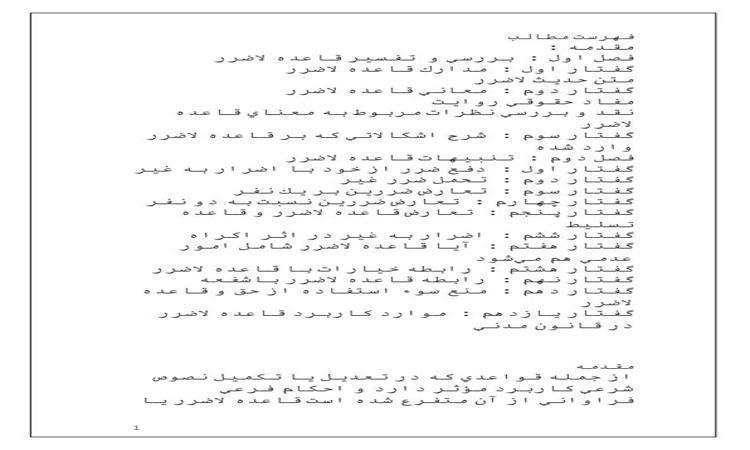 فهرست مطالب
مقدمه :
فصل اول : بررسي و تفسير قاعده لاضرر
گفتار اول : مدارك قاعده لاضرر
متن حديث لاضرر
گفتار دوم : معاني قاعده لاضرر
مفاد حقوقي روايت
نقد و بررسي نظرات مربوط به معناي قاعده
لاضرر
گفتار سوم : شرح اشكالاتي كه بر قاعده لاضرر
وارد شده
فصل دوم : تنبيهات قاعده لاضرر
گفتار اول : دفع ضرر از خود با اضرار به غير
گفتار دوم : تحمل ضرر غير
گفتار سوم : تعارض ضررين بر يك نفر
گفتار چهارم : تعارض ضررين نسبت به دو نفر
گفتار پنجم : تعارض قاعده لاضرر و قاعده
تسليط
گفتار ششم : اضرار به غير در اثر اكراه
گفتار هفتم : آيا قاعده لاضرر شامل امور
عدمي هم مي‌شود
گفتار هشتم : رابطه خيارات با قاعده لاضرر
گفتار نهم : رابطه قاعده لاضرر با شفعه
گفتار دهم : منع سوء استفاده از حق و قاعده
لاضرر
گفتار يازدهم : موارد كاربرد قاعده لاضرر
در قانون مدني
مقدمه
از جمله قواعدي كه در تعديل يا تكميل نصوص
شرعي كاربرد مؤثر دارد و احكام فرعي
فراواني از آن متفرع شده است قاعده لاضرر يا
1